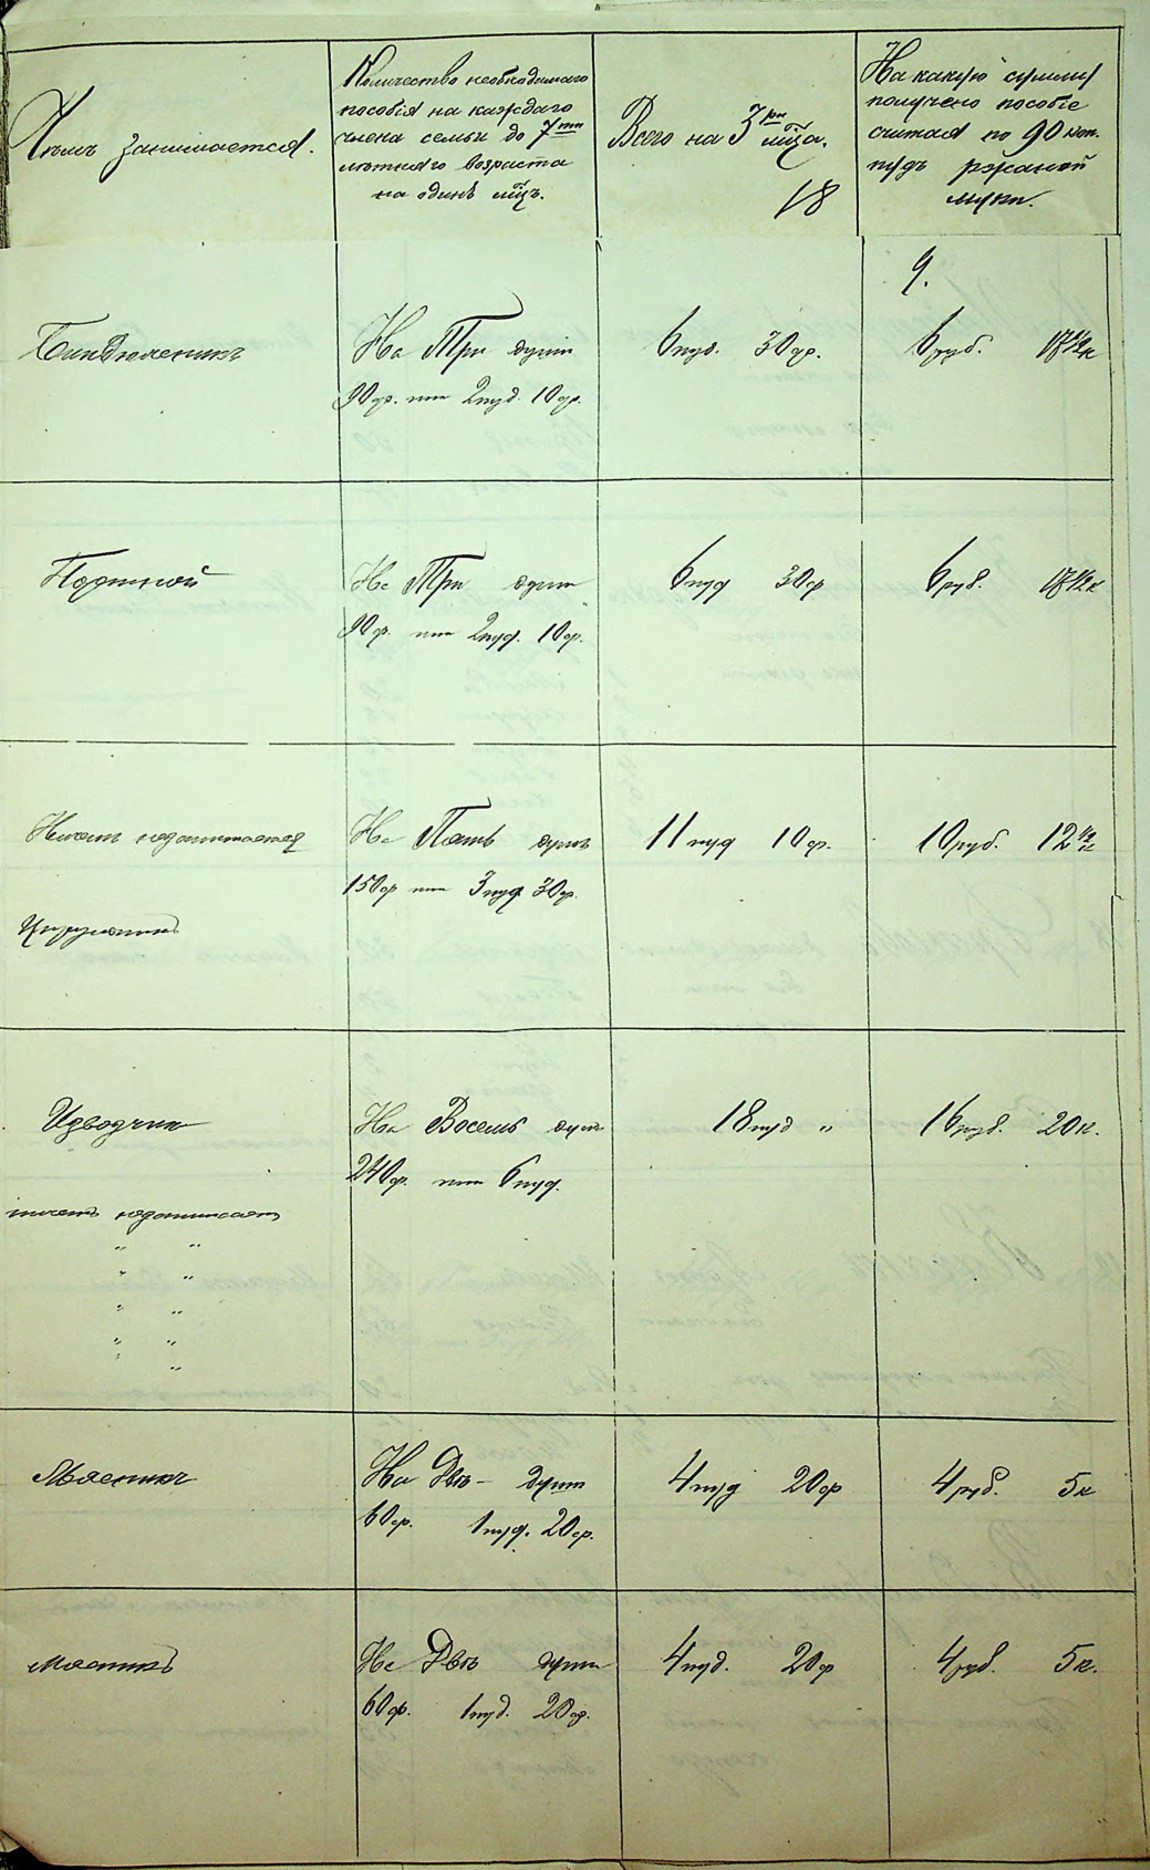 Чѣмъ занимается.
Количество необходимаго
пособія на каждаго
члена семьи до 7ми
лѣтняго возраста
на одинъ мѣсц.
Всего на 3ри мѣсца.
18
На какую сумму
получено пособіе
считая по 90 коп.
пудъ ржаной
муки.
9.
Биндюженикъ
На Три души
90ф. или 2пуд. 10ф.
6пуд. 30ф.
6руб. 17½к
Портной
На Три души
90ф. или 2пуд. 10ф.
6пуд 30ф
6руб. 17½к
Ничемъ незанимается
Цирульникъ
На Пять душъ
150ф или 3пуд 30ф.
11пуд 10ф.
10руб. 12½к
Извозчик
ничемъ незанимается
" "
" "
" "
" "
" "
На Восемь душъ
240ф. или 6пуд.
18пуд "
16руб. 20к.
Мясникъ
На Двѣ души
60ф. 1пуд. 20ф.
4пуд 20ф
4руб. 5к
Мясникъ
На Двѣ души
60ф. 1пуд. 20ф.
4пуд. 20ф
4руб. 5к.